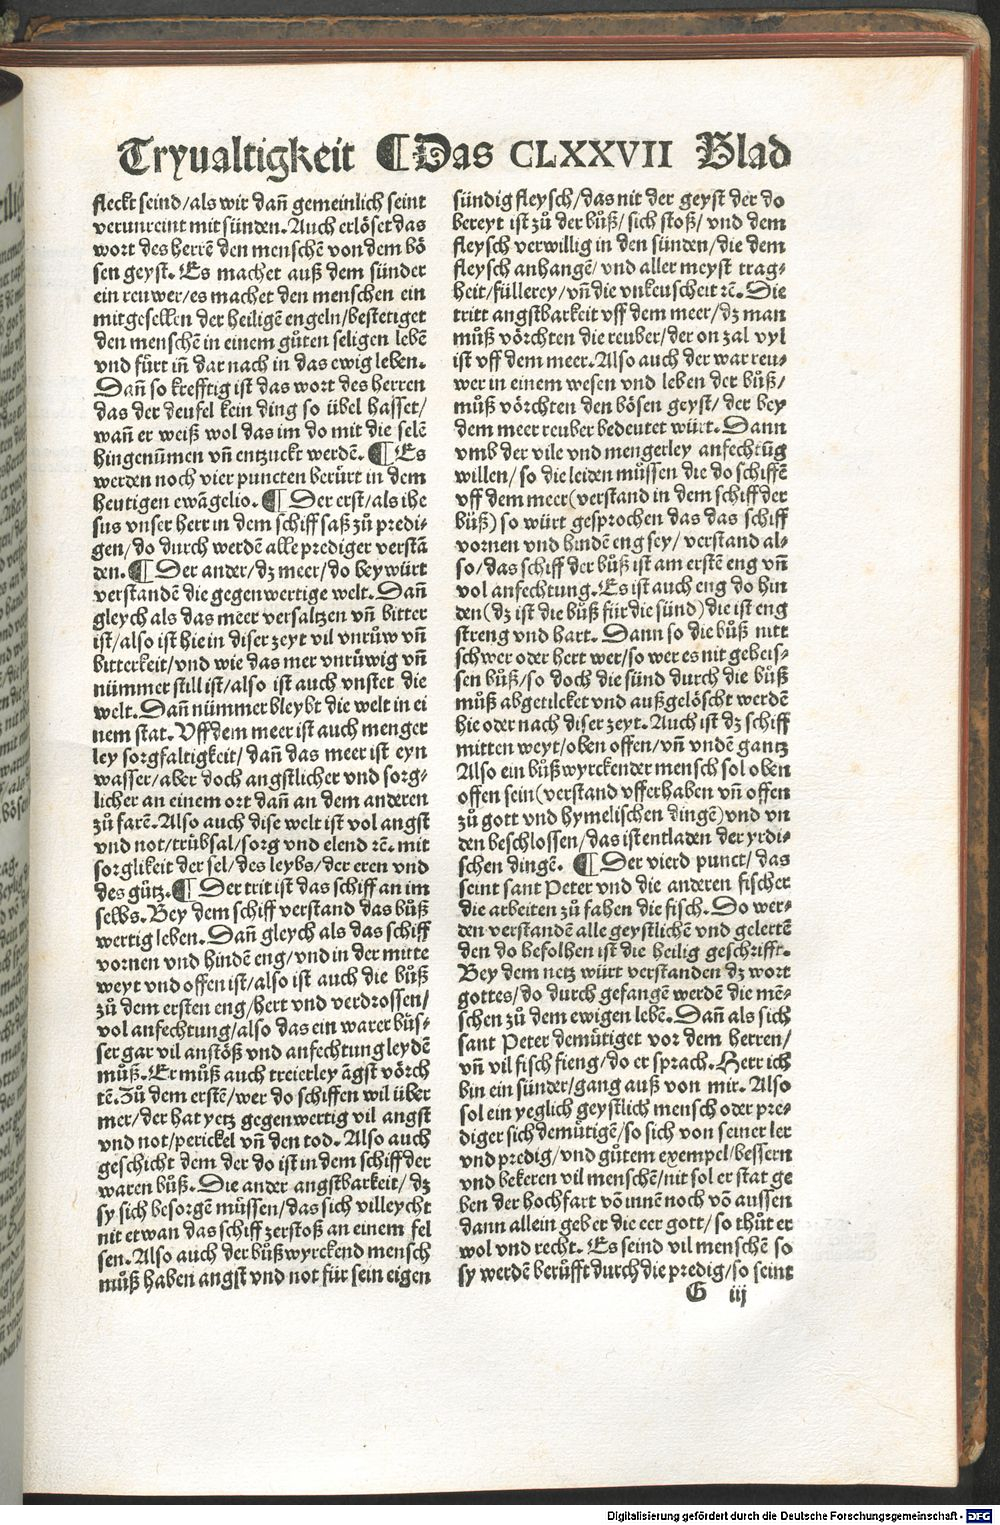 Tryualtigkeit ¶ Das CLXXVII Blad
fleckt seind/als wir dañ gemeinlich seint
verunreint mit sünden. Auch erlöset das
wort des herrẽ den menschẽ von dem bö
sen geyst. Es machet auß dem sünder
ein reuwer/es machet den menschen ein
mitgesellen der heiligẽ engeln/bestetiget
den menschẽ in einem gůten seligen lebẽ
vnd fürt iñ dar nach in das ewig leben.
Dañ so krefftig ist das wort des herren
das der deufel kein ding so übel hasset/
wañ er weiß wol das im do mit die selẽ
hingenũmen vñ entzuckt werdẽ. ¶ Es
werden noch vier puncten berürt in dem
heutigen ewãgelio. ¶ Der erst/als ihe
sus vnser herr in dem schiff saß zů predi-
gen/do durch werdẽ alle prediger verstã
den. ¶ Der ander/dz meer/do bey würt
verstandẽ die gegenwertige welt. Dañ
gleych als das meer versaltzen vñ bitter
ist/also ist hie in diser zeyt vil vnrůw vñ
bitterkeit/vnd wie das mer vnrüwig vñ
nümmer still ist/also ist auch vnstet die
welt. Dañ nümmer bleybt die welt in ei
nem stat. Vff dem meer ist auch menger
ley sorgfaltigkeit/dañ das meer ist eyn
wasser/aber doch angstlicher vnd sorg-
licher an einem ort dañ an dem anderen
zů farẽ. Also auch dise welt ist vol angst
vnd not/trübsal/sorg vnd elend ꝛc. mit
sorglikeit der sel/des leybs/der eren vnd
des gůtz. ¶ Der trit ist das schiff an im
selbs. Bey dem schiff verstand das bůß
wertig leben. Dañ gleych als das schiff
vornen vnd hindẽ eng/vnd in der mitte
weyt vnd offen ist/also ist auch die bůß
zů dem ersten eng/hert vnd verdrossen/
vol anfechtung/also das ein warer büs-
ser gar vil anstöß vnd anfechtung leydẽ
můß. Er můß auch treierley ãgst vörch
tẽ. Zů dem erstẽ/wer do schiffen wil über
mer/der hat yetz gegenwertig vil angst
vnd not/perickel vñ den tod. Also auch
geschicht dem der do ist in dem schiff der
waren bůß. Die ander angstbarkeit/dz
sy sich besorgẽ müssen/das sich villeycht
nit etwan das schiff zerstoß an einem fel
sen. Also auch der bůß wyrckend mensch
můß haben angst vnd not für sein eigen
sündig fleysch/das nit der geyst der do
bereyt ist zů der bůß/sich stoß/vnd dem
fleysch verwillig in den sünden/die dem
fleysch anhangẽ/vnd aller meyst trag-
heit/füllerey/vñ die vnkeuscheit ꝛc. Die
tritt angstbarkeit vff dem meer/dz man
můß vörchten die reuber/der on zal vyl
ist vff dem meer. Also auch der war reu-
wer in einem wesen vnd leben der bůß/
můß vörchten den bösen geyst/der bey
dem meer reuber bedeutet würt. Dann
vmb der vile vnd mengerley anfechtũg
willen/so die leiden müssen die do schiffẽ
vff dem meer(verstand in dem schiff der
bůß)so würt gesprochen das das schiff
vornen vnd hindẽ eng sey/verstand al-
so/das schiff der bůß ist am erstẽ eng vñ
vol anfechtung. Es ist auch eng do hin
den(dz ist die bůß für die sünd)die ist eng
streng vnd hart. Dann so die bůß nitt
schwer oder hert wer/so wer es nit geheis-
sen bůß/so doch die sünd durch die bůß
můß abgetilcket vnd außgelöscht werdẽ
hie oder nach diser zeyt. Auch ist dz schiff
mitten weyt/oben offen/vñ vndẽ gantz
Also ein bůß wyrckender mensch sol oben
offen sein(verstand vfferhaben vñ offen
zů gott vnd hymelischen dingẽ)vnd vn
den beschlossen/das ist entladen der yrdi-
schen dingẽ. ¶ Der vierd punct/das
seint sant Peter vnd die anderen fischer
die arbeiten zů fahen die fisch. Do wer-
den verstandẽ alle geystlichen vnd gelertẽ
den do befolhen ist die heilig geschrifft.
Bey dem netz würt verstanden dz wort
gottes/do durch gefangẽ werdẽ die mẽ-
schen zů dem ewigen lebẽ. Dañ als sich
sant Peter demütiget vor dem herren/
vñ vil fisch fieng/do er sprach. Herr ich
bin ein sünder/gang auß von mir. Also
sol ein yeglich geystlich mensch oder pre-
diger sich demütigẽ/so sich von seiner ler
vnd predig/vnd gůtem exempel/bessern
vnd bekeren vil menschẽ/nit sol er stat ge
ben der hochfart võ innẽ noch võ aussen
dann allein geb er die eer gott/so thůt er
wol vnd recht. Es seind vil menschẽ so
sy werdẽ berůfft durch die predig/so seint
G iij
Digitalisierung gefördert durch die Deutsche Forschungsgemeinschaft - DFG